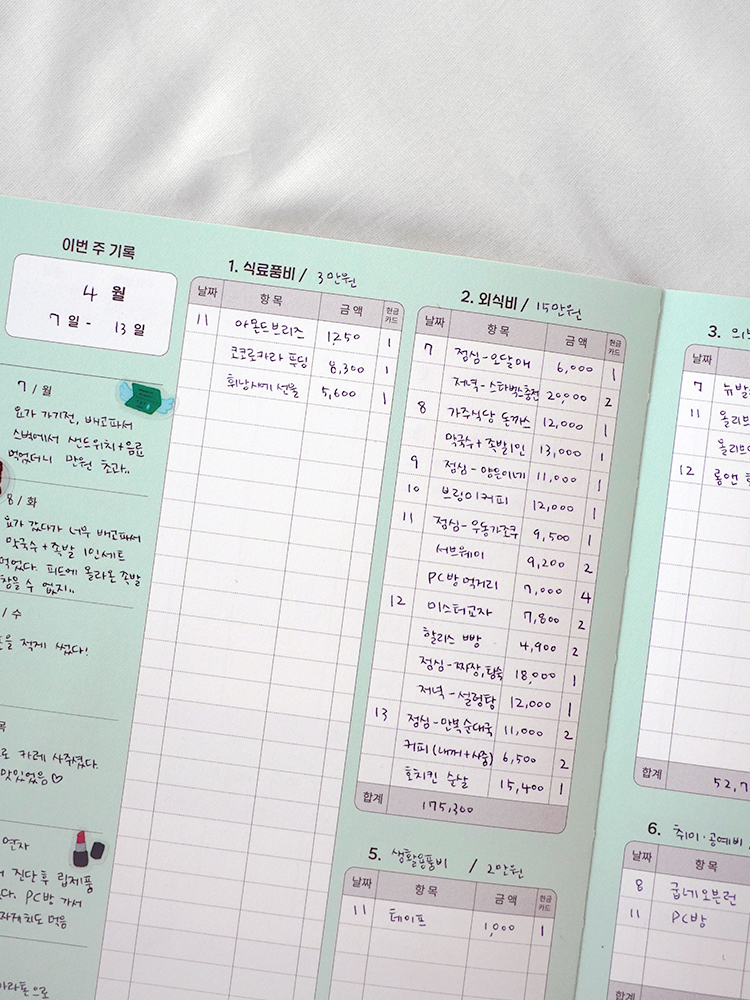 이번 주 기록
4 월
7 일 - 13 일
7 / 월
요가 가기전, 배고파서
스벅에서 샌드위치+음료
먹었더니 만원 초과..
8 / 화
요가 갔다가 너무 배고파서
막국수+족발 1인세트
먹었다. 피드에 올라온 족발
참을 수 없지..
/ 수
적게 썼다!
카레 사주셨다.
맛있었음♡
진단 후 립제품
PC방 가서
먹음
1. 식료품비 / 3만원
날짜 항목 금액 현금 카드
11 아몬드브리즈 1,250 1
코코로카라 푸딩 8,300 1
휘낭시에 선물 5,600 1
2. 외식비 / 15만원
날짜 항목 금액 현금 카드
7 점심-오달애 6,000 1
저녁-스타벅스충전 20,000 2
8 가주식당 돈까스 12,000 1
막국수+족발1인 13,000 1
9 점심-양은이네 11,000 1
10 브링이커피 12,000 1
11 점심-우동가조쿠 9,500 1
서브웨이 9,200 2
PC방 먹거리 7,000 4
12 미스터교자 7,800 2
할리스 빵 4,900 2
점심-짜장,탕숙 18,000 1
저녁-설렁탕 12,000 1
13 점심-만복순대국 11,000 2
커피(내꺼+사줌) 6,500 2
호치킨 순살 15,400 1
합계 175,300
5. 생활용품비 / 2만원
날짜 항목 금액 현금 카드
11 테이프 1,000 1
3.
날짜
7
11 올리브
올리브
12
합계 52,7
6. 취미·공예비
날짜 항목
8 굽네오븐런
11 PC방
합계